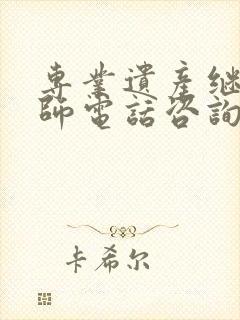 專業遺產继
師電話咨詢
卡希尔